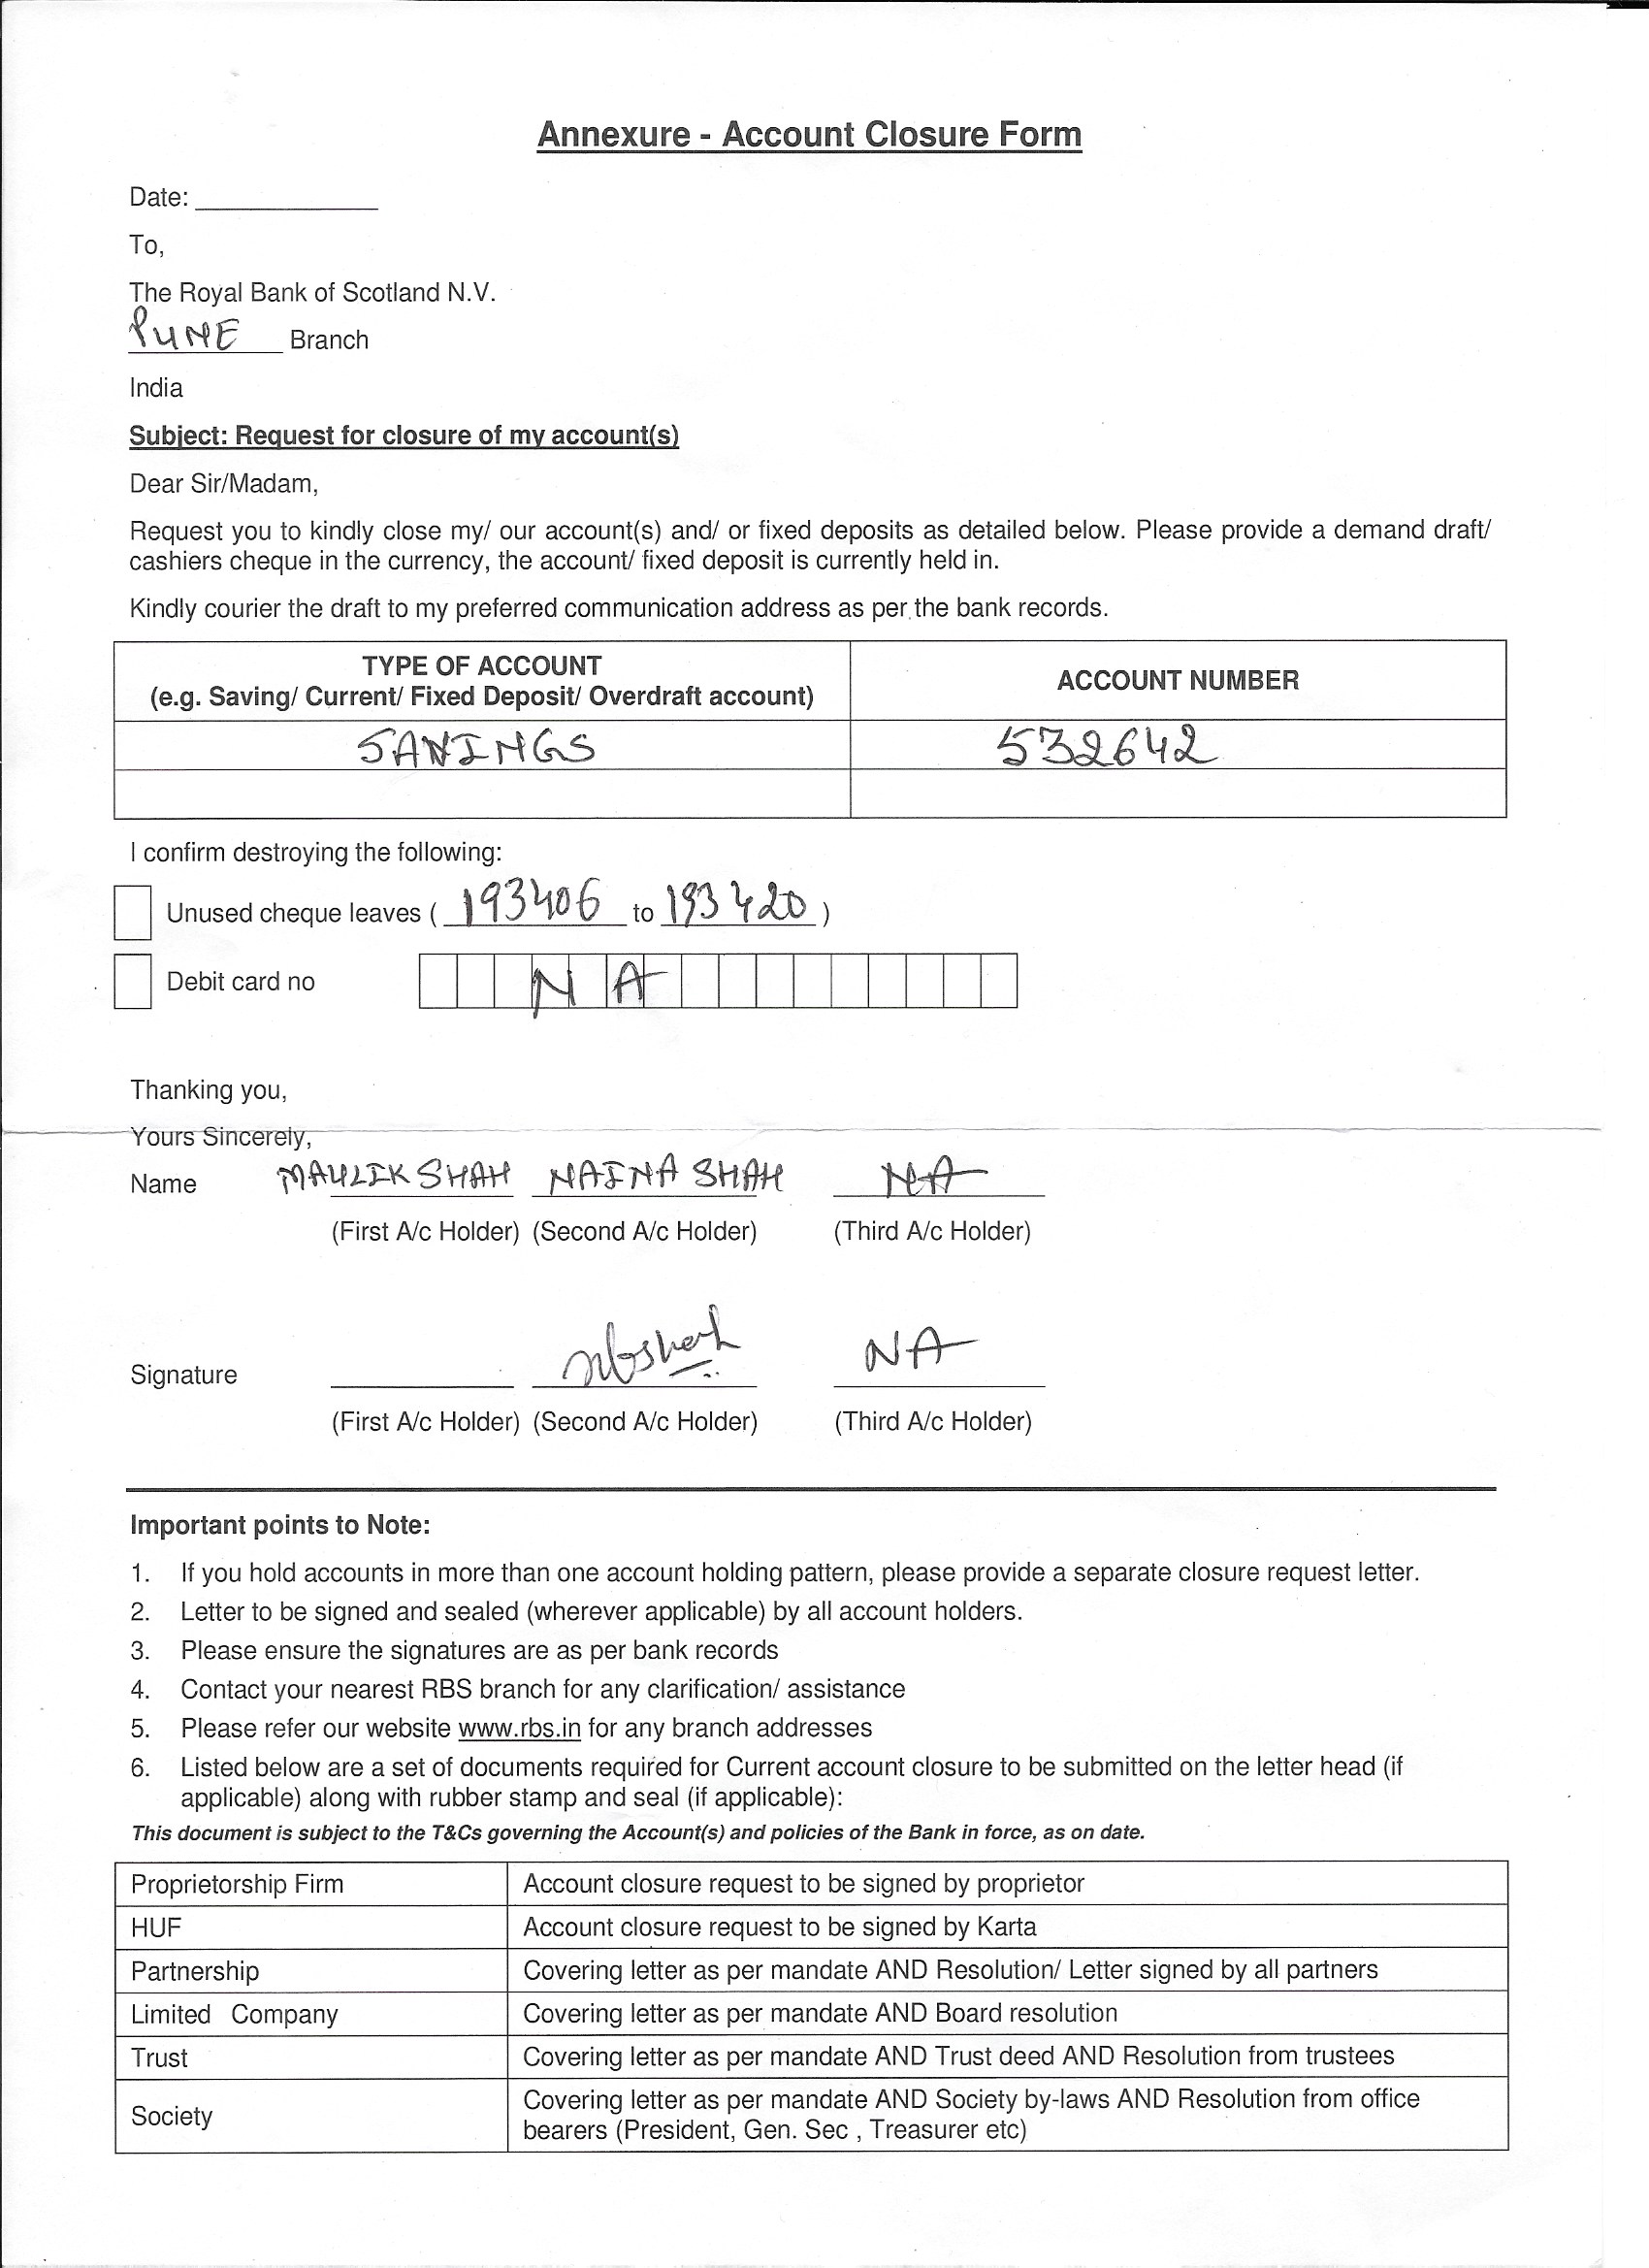 Annexure - Account Closure Form
Date:
To,
The Royal Bank of Scotland N.V.
PUNE Branch
India
Subject: Request for closure of my account(s)
Dear Sir/Madam,
Request you to kindly close my/ our account(s) and/ or fixed deposits as detailed below. Please provide a demand draft/
cashiers cheque in the currency, the account/ fixed deposit is currently held in.
Kindly courier the draft to my preferred communication address as per the bank records.
TYPE OF ACCOUNT
(e.g. Saving/ Current/ Fixed Deposit/ Overdraft account)
ACCOUNT NUMBER
SAVINGS 532642
I confirm destroying the following:
Unused cheque leaves ( 193406 to 193420 )
Debit card no N A
Thanking you,
Yours Sincerely,
Name MAULIK SHAH NAINA SHAH NA
(First A/c Holder) (Second A/c Holder) (Third A/c Holder)
Signature nbshah NA
(First A/c Holder) (Second A/c Holder) (Third A/c Holder)
Important points to Note:
1. If you hold accounts in more than one account holding pattern, please provide a separate closure request letter.
2. Letter to be signed and sealed (wherever applicable) by all account holders.
3. Please ensure the signatures are as per bank records
4. Contact your nearest RBS branch for any clarification/ assistance
5. Please refer our website www.rbs.in for any branch addresses
6. Listed below are a set of documents required for Current account closure to be submitted on the letter head (if
applicable) along with rubber stamp and seal (if applicable):
This document is subject to the T&Cs governing the Account(s) and policies of the Bank in force, as on date.
Proprietorship Firm Account closure request to be signed by proprietor
HUF Account closure request to be signed by Karta
Partnership Covering letter as per mandate AND Resolution/ Letter signed by all partners
Limited Company Covering letter as per mandate AND Board resolution
Trust Covering letter as per mandate AND Trust deed AND Resolution from trustees
Society Covering letter as per mandate AND Society by-laws AND Resolution from office
bearers (President, Gen. Sec , Treasurer etc)